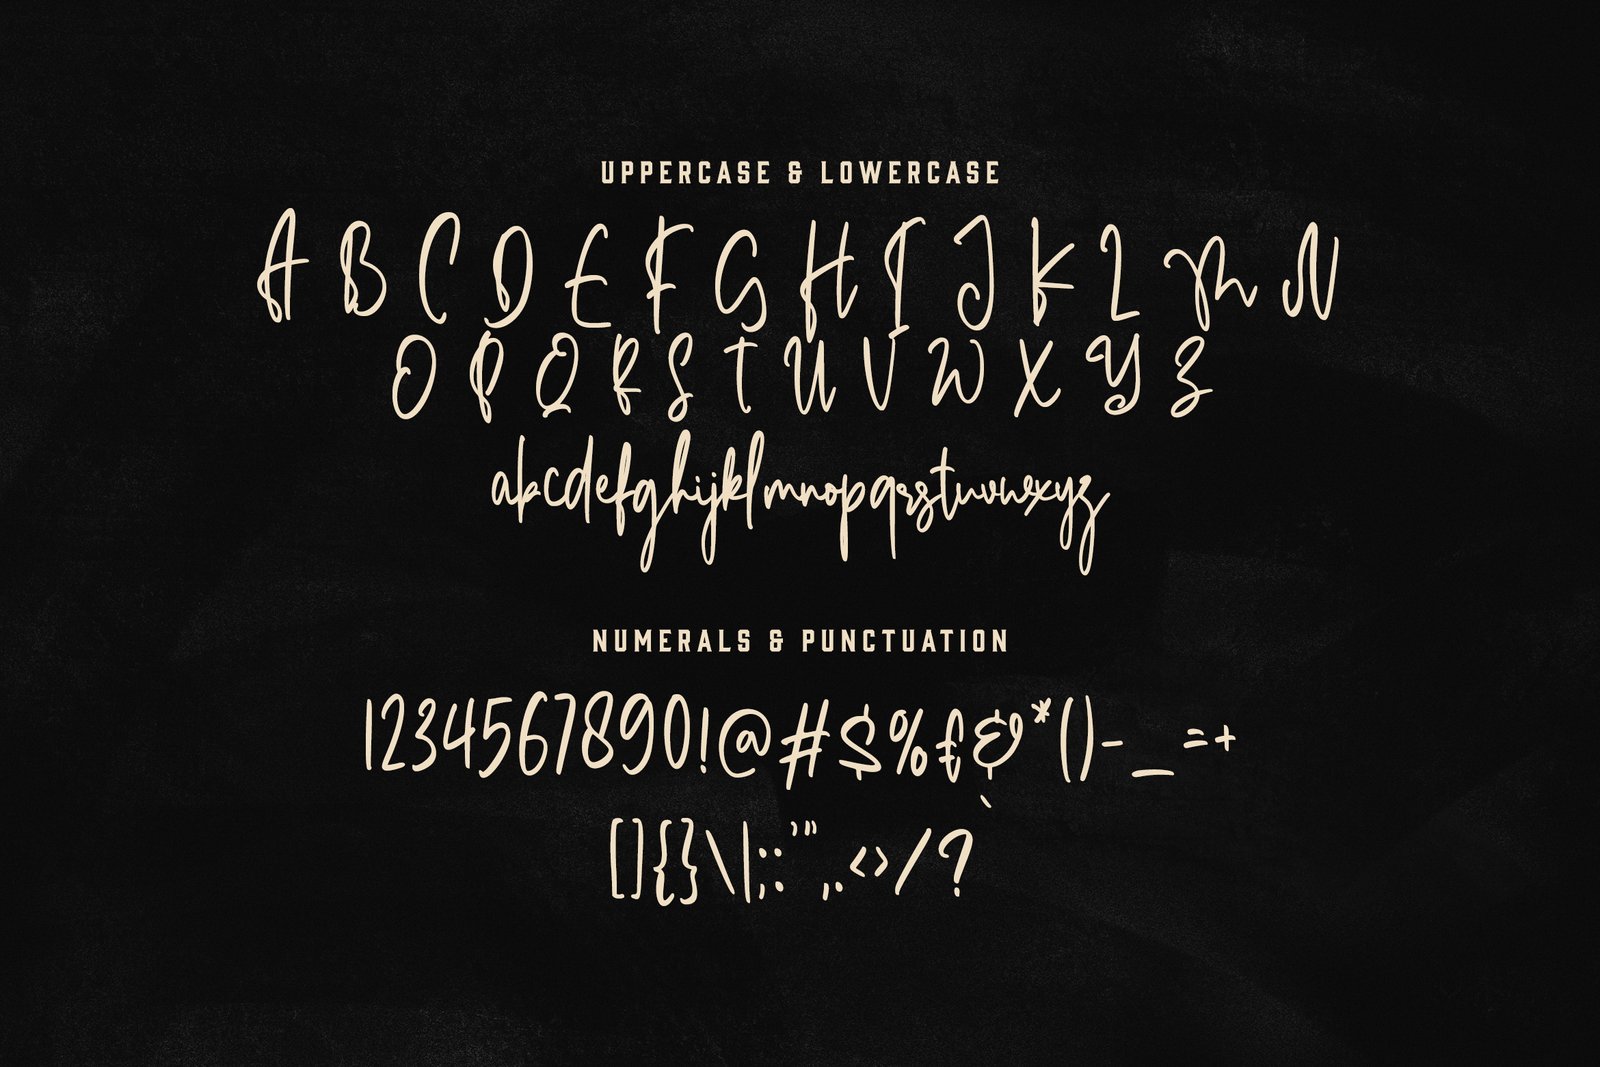 UPPERCASE & LOWERCASE
A B C D E F G H I J K L M N
O P Q R S T U V W X Y Z
abcdefghijklmnopqrstuvwxyz
NUMERALS & PUNCTUATION
1234567890!@#$%£&*()-_=+
[]{}\|;:'",.<>/?`